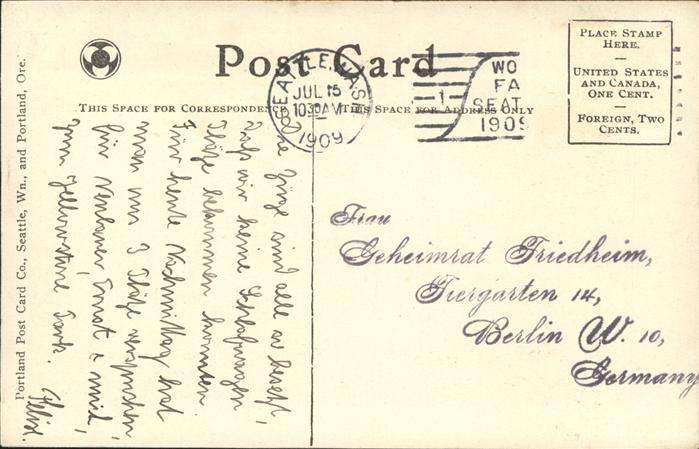 Post Card
THIS SPACE FOR CORRESPONDENCE
THIS SPACE FOR ADDRESS ONLY
SEATTLE, WASH
JUL 15
1030AM
1909
WO
FA
SEAT
1909
1
PLACE STAMP
HERE.
UNITED STATES
AND CANADA,
ONE CENT.
FOREIGN, TWO
CENTS.
Die Züge sind alle so besetzt,
daß wir keine Schlafwagen
Plätze bekommen konnten.
Für heute Nachmittag hat
man uns 3 Plätze versprochen,
für Neubauer, Ernst & mich,
zum Yellowstone Park. Felix.
Frau
Geheimrat Friedheim,
Tiergarten 14,
Berlin W. 10,
Germany
Portland Post Card Co., Seattle, Wn., and Portland, Ore.